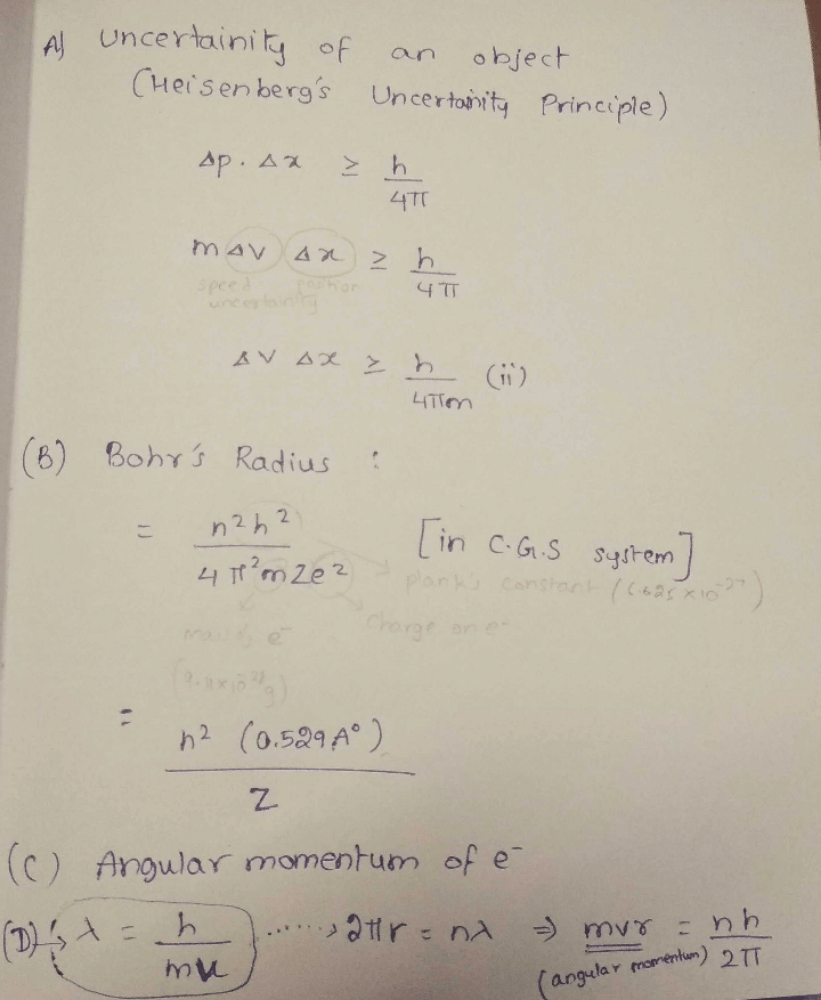 A) Uncertainity of an object
(Heisenberg's Uncertainity Principle)
Δp . Δx ≥ h/4π
m Δv Δx ≥ h/4π
speed position
uncertainity
Δv Δx ≥ h/4πm (ii)
(B) Bohr's Radius :
= n²h²/4π²mZe² [in C.G.S system]
plank's constant (6.625 × 10⁻²⁷)
mass of e⁻ Charge on e⁻
(9.11×10⁻²⁸g)
= n² (0.529 A°)/Z
(C) Angular momentum of e⁻
(D) λ = h/mv ......> 2πr = nλ ⇒ mvr = nh/2π
(angular momentum)